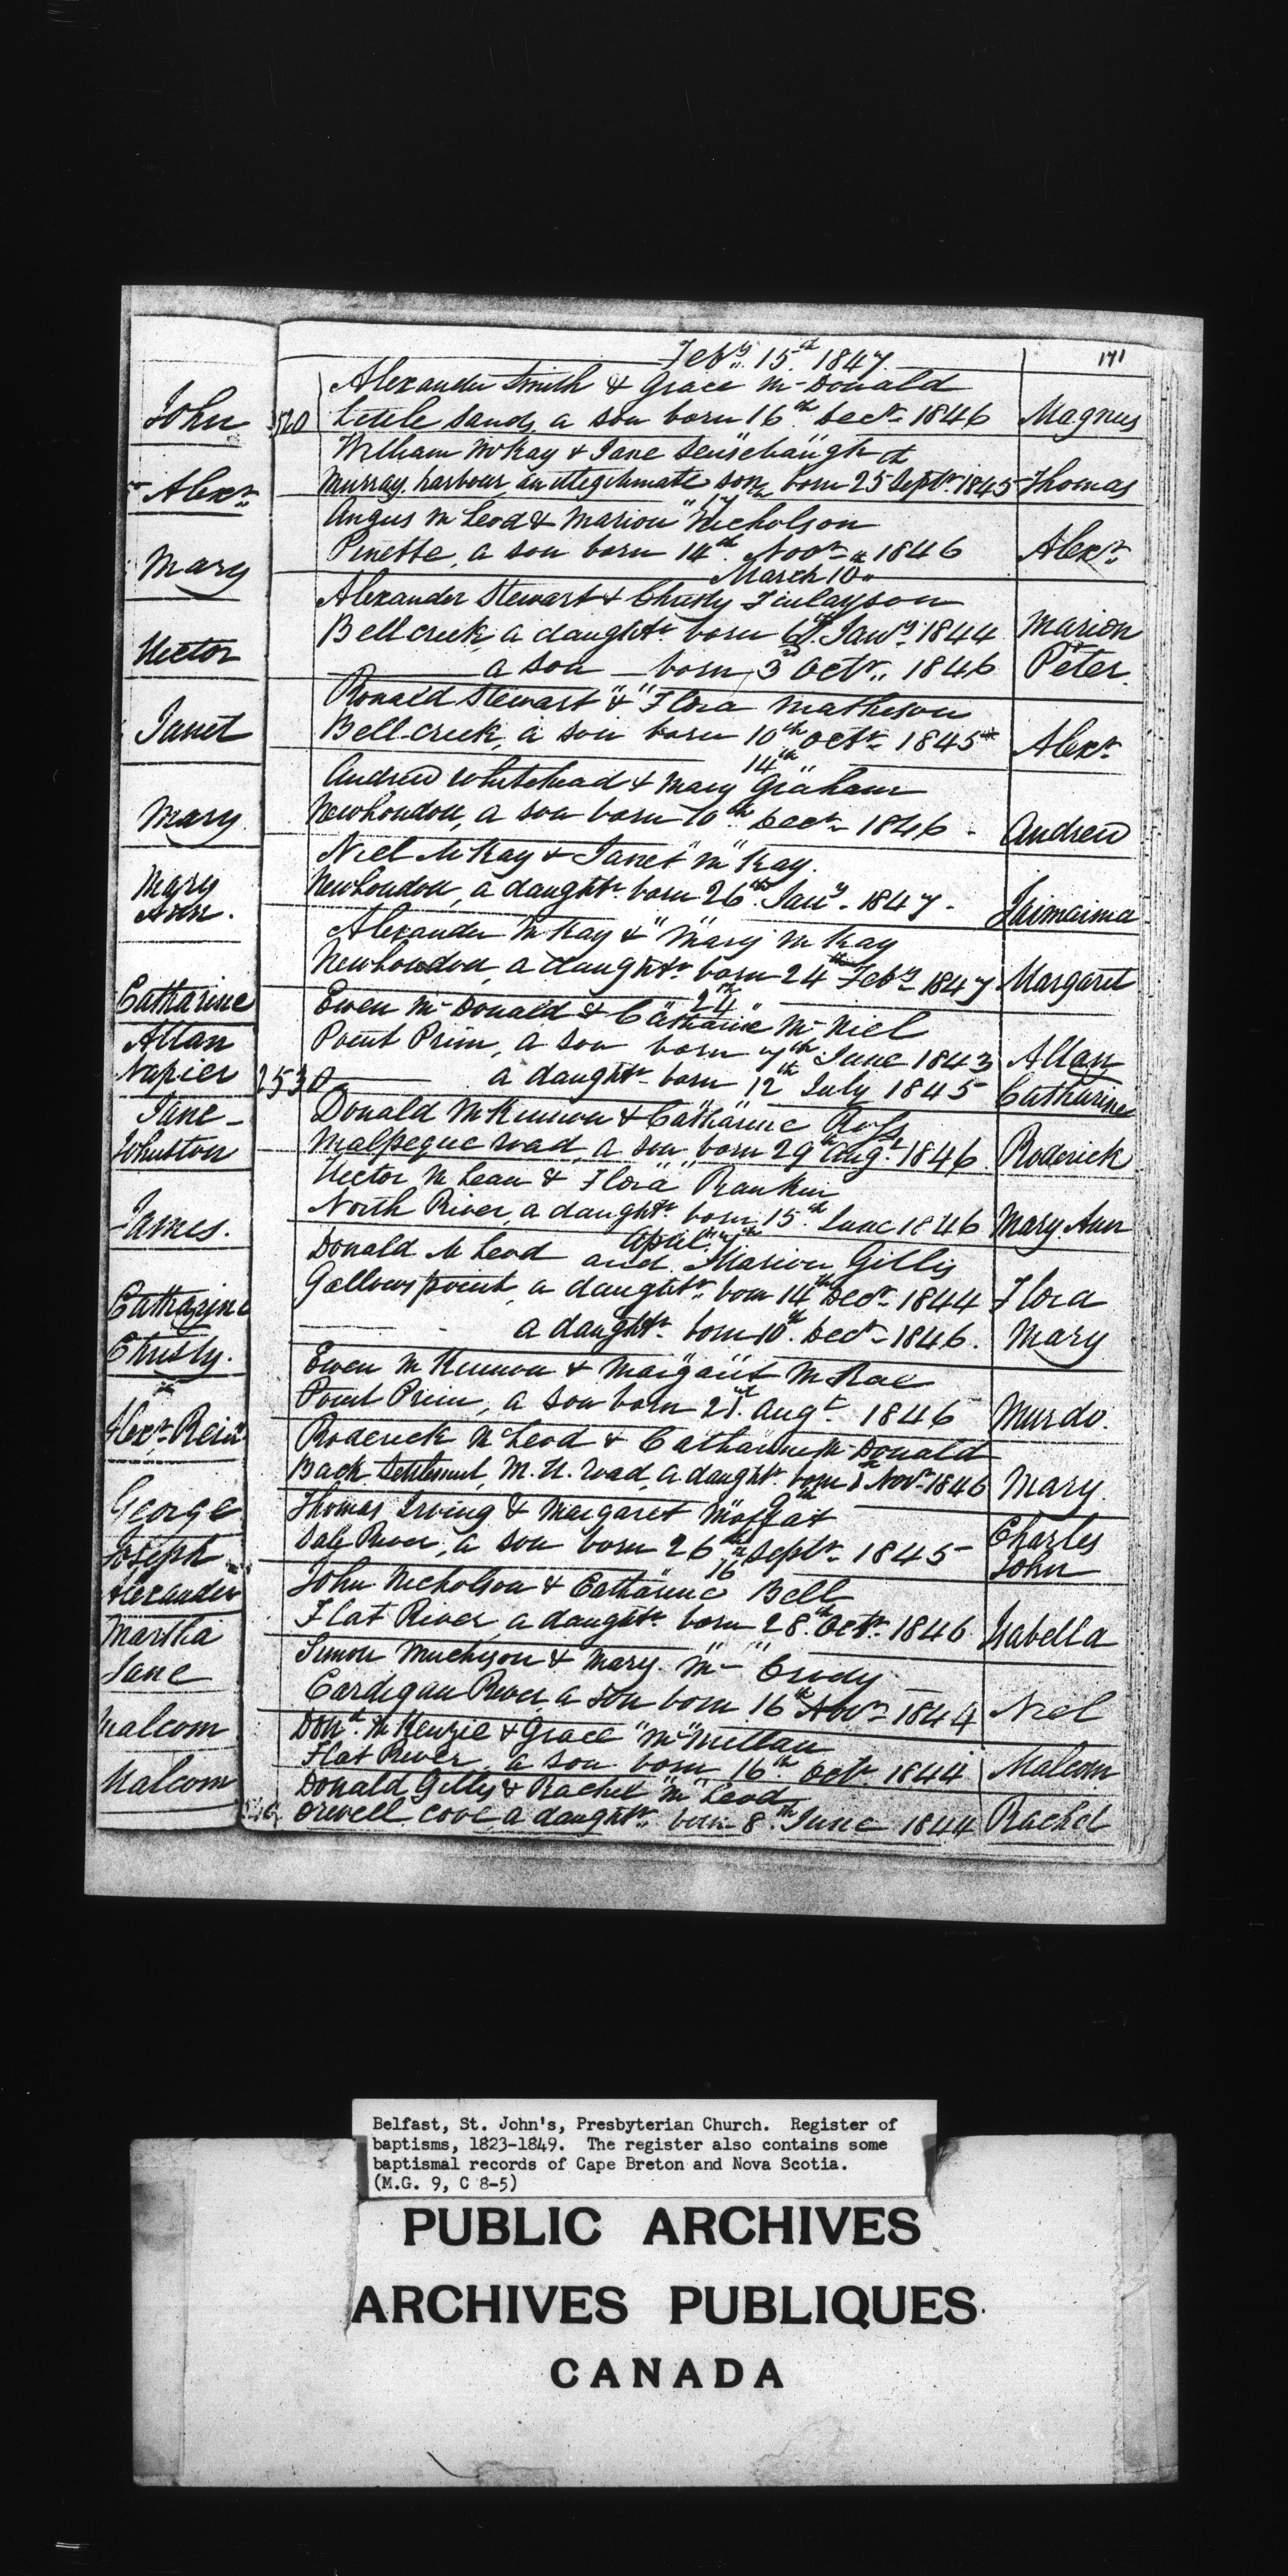 Feby. 15th 1847.
171
Alexander Smith & Grace Mc Donald
John
520
Little sands, a son born 16th Decr. 1846
Magnus
William McKay & Jane
Alexr.
Murray harbour, an illegitimate son, born 25 Septr. 1845
Thomas
17th
Angus McLeod & Marion Nicholson
Pinette, a son born 14th Novr. 1846
Alexr.
Mary
March 10th
Alexander Stewart & Christy Finlayson
Bell creek, a daughtr. born Jany. 1844
Marion
Hector
a son born 3 Octr. 1846
Peter.
Ronald Stewart & Flora Matheson
Janet
Bell creek, a son born 10th Octr. 1845
Alexr.
14th
Andrew Whitehead & Mary Graham
Mary
New London, a son born 10th Decr. 1846
Andrew
Niel McKay & Janet McKay.
Mary
Ann.
New London, a daughtr. born 26th Jany. 1847
Jaimaima
Alexander McKay & Mary McKay
New London, a daughtr. born 24th Feby. 1847
Margaret
Catharine
24th
Ewen McDonald & Catharine McNiel
Allan
Point Prim, a son born 7th June 1843
Allan
Napier
2530
a daughtr. born 12th July 1845
Catharine
Jane
Donald McKinnon & Catharine Ross
Johnston
Malpeque road, a son born 29th Augt. 1846
Roderick
Hector McLean & Flora Rankin
James.
North River, a daughtr. born 15th June 1846
Mary Ann
April 7th
Donald McLeod and Marion Gillis
Catharine
Gallows point, a daughtr. born 14th Decr. 1844
Flora
Christy.
a daughtr. born 10th Decr. 1846.
Mary
Ewen McKinnon & Margaret McRae
Point Prim, a son born 21st Augt. 1846
Murdo.
Alexr.
Roderick McLeod & Catharine McDonald
Back Settlement, M. H. road, a daughtr. born 1 Novr. 1846
Mary.
George
9th
Thomas Irving & Margaret Moffat
Charles
Joseph
River, a son born 26th Septr. 1845
John
16th
Alexander
John Nicholson & Catharine Bell
Martha
Flat River, a daughtr. born 28th Octr. 1846
Isabella
Jane
Simon Muchison & Mary Mc
Cardigan River, a son born 16th Novr. 1844
Niel
Malcom
Dond. McKenzie & Grace McMillan
Flat River, a son born 16th Octr. 1844
Malcom
Malcom
Donald Gillis & Rachel McLeod
Orwell Cove, a daughtr. born 8th June 1844
Rachel
Belfast, St. John's, Presbyterian Church. Register of
baptisms, 1823-1849. The register also contains some
baptismal records of Cape Breton and Nova Scotia.
(M.G. 9, C 8-5)
PUBLIC ARCHIVES
ARCHIVES PUBLIQUES
CANADA